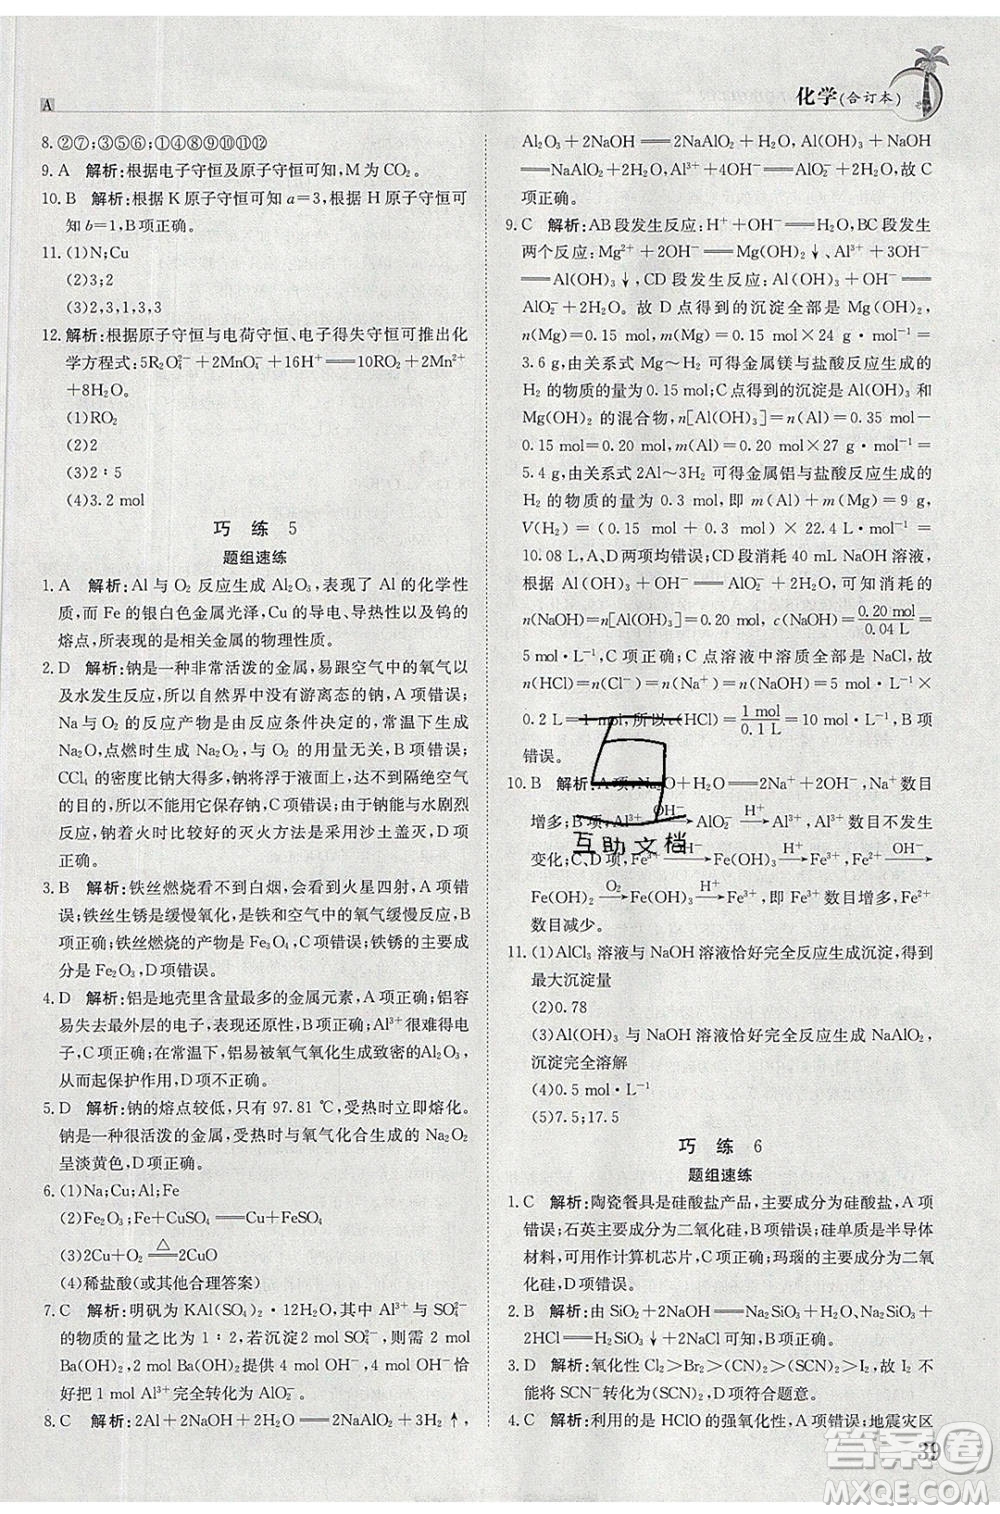 A
化学(合订本)
8. ②⑦;③⑤⑥;①④⑧⑨⑩⑪⑫
9. A　解析:根据电子守恒及原子守恒可知,M 为 CO₂。
10. B　解析:根据 K 原子守恒可知 a=3,根据 H 原子守恒可
知 b=1,B 项正确。
11. (1)N;Cu
(2)3;2
(3)3,2,1,3,3
12. 解析:根据原子守恒与电荷守恒、电子得失守恒可推出化
学方程式:5R₂O₈²⁻+2MnO₄⁻+16H⁺══10RO₂+2Mn²⁺
+8H₂O。
(1)RO₂
(2)2
(3)2∶5
(4)3.2 mol
巧 练 5
题组速练
1. A　解析:Al 与 O₂ 反应生成 Al₂O₃,表现了 Al 的化学性
质,而 Fe 的银白色金属光泽,Cu 的导电、导热性以及钨的
熔点,所表现的是相关金属的物理性质。
2. D　解析:钠是一种非常活泼的金属,易跟空气中的氧气以
及水发生反应,所以自然界中没有游离态的钠,A 项错误;
Na 与 O₂ 的反应产物是由反应条件决定的,常温下生成
Na₂O,点燃时生成 Na₂O₂,与 O₂ 的用量无关,B 项错误;
CCl₄ 的密度比钠大,钠将浮于液面上,达不到隔绝空气的
目的,故不能保存在 CCl₄ 中,C 项错误;钠与水剧烈反应,
钠着火时,较好的灭火方法为用沙土盖灭,D 项正确。
3. B　解析:铁丝燃烧看不到白烟,会看到火星四射,A 项错
误;铁丝生锈是缓慢氧化,是铁和空气中的氧气缓慢反应生
成的,B 项正确;铁丝燃烧的产物是 Fe₃O₄,铁锈的主要成
分是 Fe₂O₃,D 项错误。
4. D　解析:铝是地壳里含量最多的金属元素,A 项错误;铝容
易失去最外层的电子,表现还原性,B 项错误;Al³⁺很难得电
子,C 项错误;在常温下,铝易被氧气氧化而生成 Al₂O₃,Al₂O₃
起保护作用,D 项正确。
5. D　解析:钠的熔点较低,只有 97.81 ℃,受热时立即熔化。
钠是非常活泼的金属,受热时与氧气化合生成的 Na₂O₂
呈淡黄色,D 项正确。
6. (1)Na;Cu;Al;Fe
(2)Fe₂O₃;Fe+CuSO₄══Cu+FeSO₄
(3)2Cu+O₂══△2CuO
(4)稀盐酸(或其他合理答案)
7. C　解析:明矾为 KAl(SO₄)₂·12H₂O,其中 Al³⁺与 SO₄²⁻
的物质的量之比为 1∶2,若沉淀 2 mol SO₄²⁻,则需 2 mol
Ba(OH)₂,2 mol Ba(OH)₂提供 4 mol OH⁻,4 mol OH⁻
可把 1 mol Al³⁺完全转化为 AlO₂⁻。
8. C　解析:2Al+2NaOH+2H₂O══2NaAlO₂+3H₂↑,
Al₂O₃+2NaOH══2NaAlO₂+H₂O,Al(OH)₃+
NaOH══NaAlO₂+2H₂O,Al³⁺+4OH⁻══AlO₂⁻+2H₂O,C
项正确。
9. C　解析:AB 段发生反应:H⁺+OH⁻══H₂O,BC 段发生
两个反应:Mg²⁺+2OH⁻══Mg(OH)₂↓、Al³⁺+3OH⁻
══Al(OH)₃↓,CD 段发生反应:Al(OH)₃+OH⁻══
AlO₂⁻+2H₂O。故 D 点得到的沉淀全部是 Mg(OH)₂,
n(Mg)=0.15 mol,m(Mg)=0.15 mol×24 g·mol⁻¹=
3.6 g,由关系式 Mg～H₂ 可得金属镁与盐酸反应生成的
H₂ 的物质的量为 0.15 mol;C 点得到的沉淀是 Al(OH)₃ 和
Mg(OH)₂ 的混合物,n[Al(OH)₃]=n(Al)=0.35 mol-
0.15 mol=0.20 mol,m(Al)=0.20 mol×27 g·mol⁻¹=
5.4 g,由关系式 2Al～3H₂ 可得金属铝与盐酸反应生成的
H₂ 的物质的量为 0.3 mol,即 m(Al)+m(Mg)=9 g,
V(H₂)=(0.15 mol+0.3 mol)×22.4 L·mol⁻¹=
10.08 L,A、D 两项均错误;CD 段消耗 40 mL NaOH 溶液,
根据 Al(OH)₃+OH⁻══AlO₂⁻+2H₂O 可知消耗的
n(NaOH)=n[Al(OH)₃]=0.20 mol,c(NaOH)=0.20 mol/0.04 L
=5 mol·L⁻¹,C 项正确;C 点溶液中溶质全部是 NaCl,故
n(HCl)=n(Cl⁻)=n(Na⁺)=n(NaOH)=5 mol·L⁻¹×
0.2 L=1 mol,所以 c(HCl)=1 mol/0.1 L=10 mol·L⁻¹,B 项
错误。
10. B　解析:A 项,Na₂O+H₂O══2Na⁺+2OH⁻,Na⁺数目
增多;B 项,Al³⁺ OH⁻→ AlO₂⁻ H⁺→ Al³⁺,Al³⁺数目不发生
变化;C、D 项,Fe²⁺ OH⁻→ Fe(OH)₃ H⁺→ Fe³⁺,Fe²⁺ OH⁻→
Fe(OH)₂ O₂→ Fe(OH)₃ H⁺→ Fe³⁺,即 Fe²⁺数目减小,Fe³⁺
数目减少。
11. (1)AlCl₃ 溶液与 NaOH 溶液恰好完全反应生成沉淀,得到
最大沉淀量
(2)0.78
(3)Al(OH)₃ 与 NaOH 溶液恰好完全反应生成 NaAlO₂,
沉淀完全溶解
(4)0.5 mol·L⁻¹
(5)7.5;17.5
巧 练 6
题组速练
1. C　解析:陶瓷餐具是硅酸盐产品,主要成分为硅酸盐,A 项
错误;石英主要成分为二氧化硅,B 项错误;硅单质为半导体
材料,可用作计算机芯片,C 项正确;玛瑙的主要成分为二氧
化硅,D 项错误。
2. B　解析:由 SiO₂+2NaOH══Na₂SiO₃+H₂O,Na₂SiO₃+
2HCl══H₂SiO₃↓+2NaCl 可知,B 项正确。
3. D　解析:氧化性 Cl₂>Br₂>(CN)₂>(SCN)₂>I₂,故 I₂ 不可
能将 SCN⁻转化为(SCN)₂,D 项符合题意。
4. C　解析:利用的是 HClO 的强氧化性,A 项错误;地震灾区
39
互助文档
答案卷
MXQE.COM